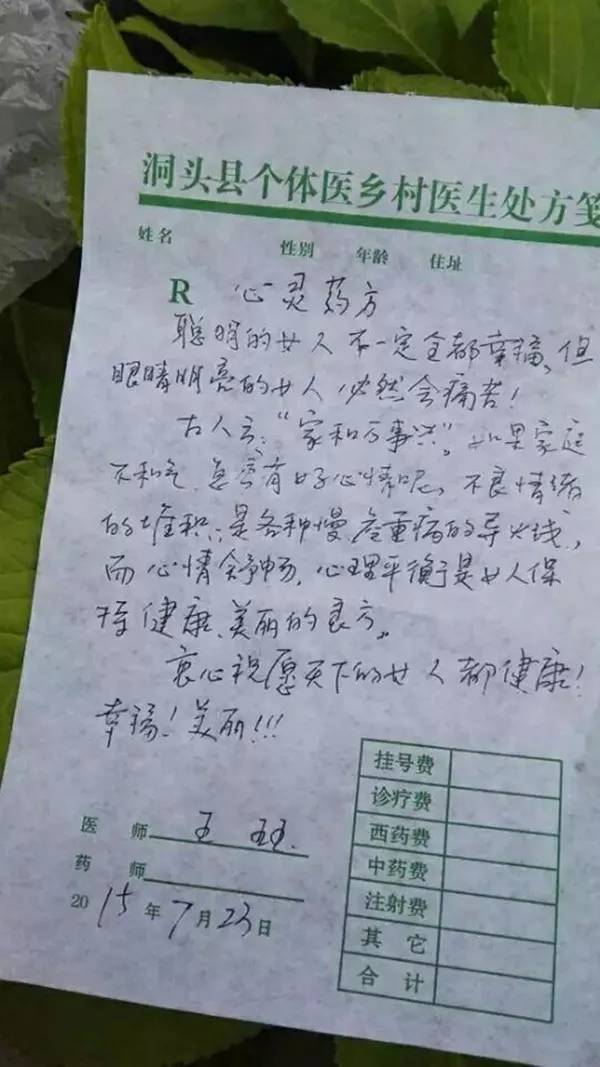 洞头县个体医乡村医生处方笺
姓名 性别 年龄 住址
R 心灵药方
聪明的女人不一定全都幸福、但
眼睛明亮的女人必然会痛苦！
古人云：“家和万事兴”。如果家庭
不和气、怎有好心情呢、不良情绪
的堆积：是各种慢、危重病的导火线，
而心情舒畅、心理平衡是女人保
持健康、美丽的良方。
衷心祝愿天下的女人都健康！
幸福！美丽！！！
医师 王
药师
2015年7月23日
挂号费
诊疗费
西药费
中药费
注射费
其它
合计